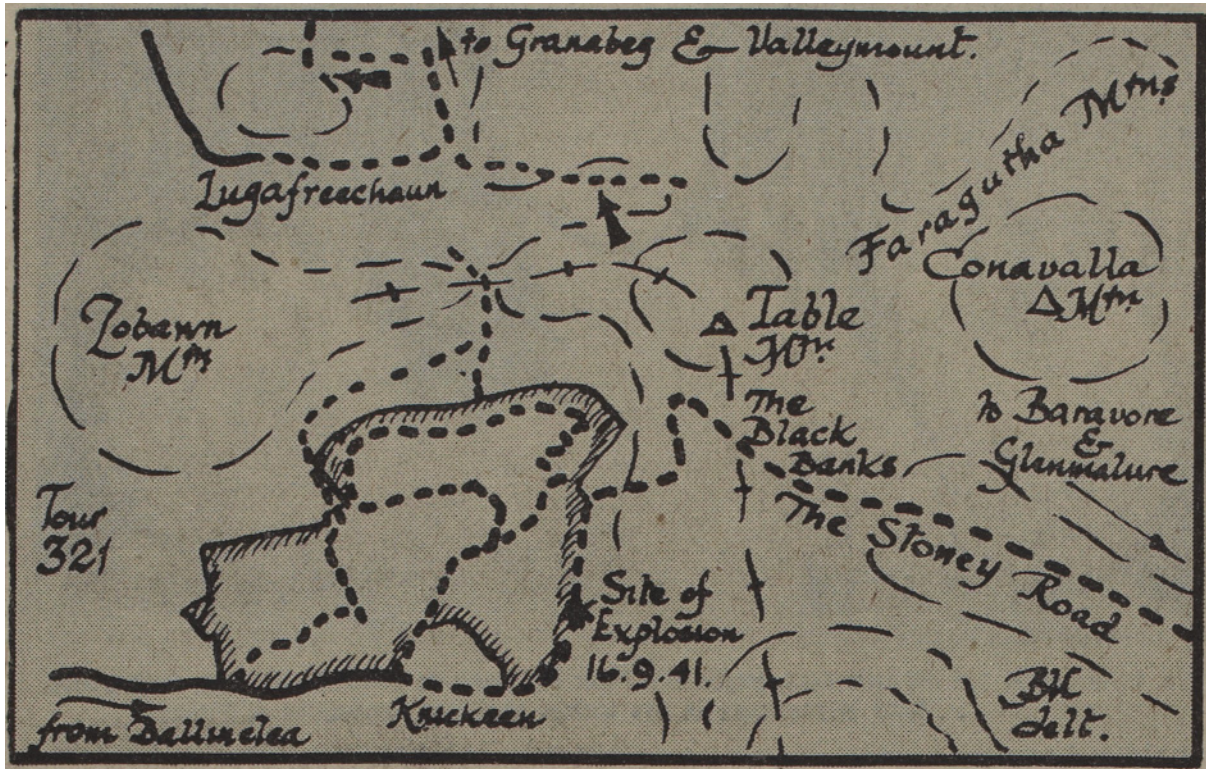 to Granabeg & Valleymount.
Lugafreechaun
Faragutha Mtns
Conavalla
Mtn.
Lobawn
Mtn
Table
Mtn.
The
Black
Banks
to Baravore
&
Glenmalure
Tour
321
The Stoney Road
Site of
Explosion
16.9.41.
Knickeen
from Ballinclea
BH
delt.